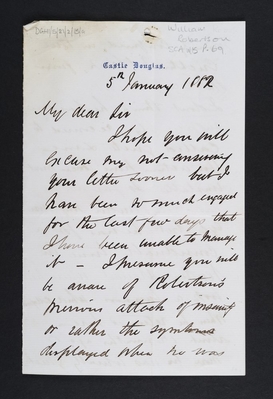 William
Robertson
Castle Douglas.
5th January 1882
My dear Sir
I hope you will
excuse my not answering
your letter sooner but I
have been so much engaged
for the last few days that
I have been unable to manage
it – I presume you will
be aware of Robertson's
previous attack of insanity
or rather the symptoms
displayed when he was